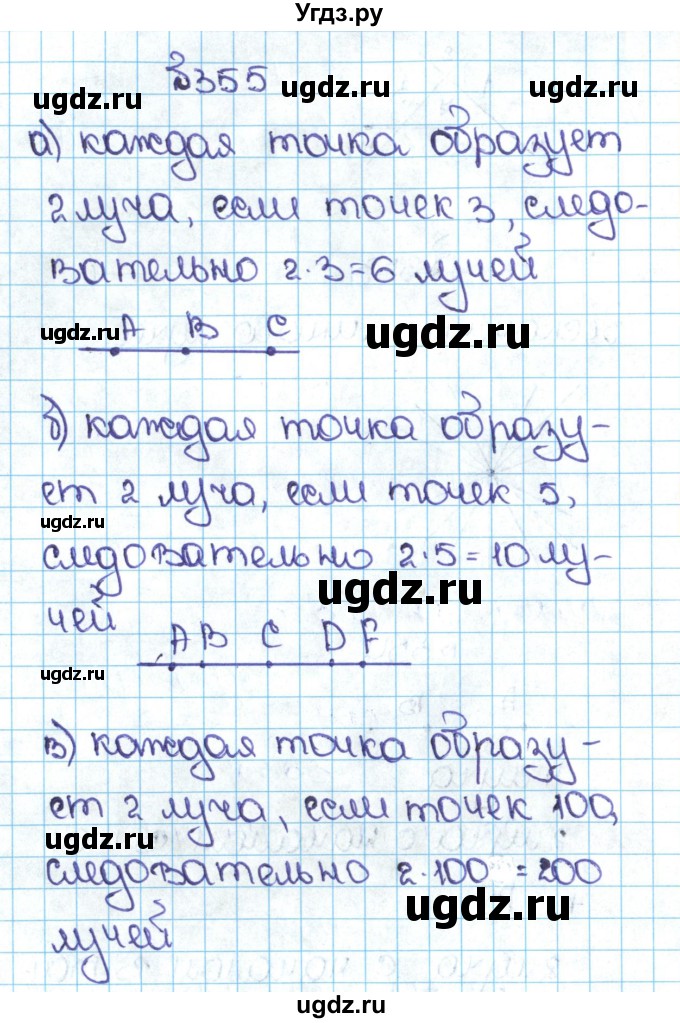 Угдз.ру
№355
ugdz.ru ugdz.ru
а) каждая точка образует
2 луча, если точек 3, следо-
вательно 2·3=6 лучей
ugdz.ru A B C ugdz.ru
б) каждая точка образу-
ет 2 луча, если точек 5,
ugdz.ru
следовательно 2·5=10 лу-
ugdz.ru
чей
A B C D F
ugdz.ru
в) каждая точка образу-
ет 2 луча, если точек 100,
ugdz.ru
следовательно 2·100=200
ugdz.ru
лучей
ugdz.ru